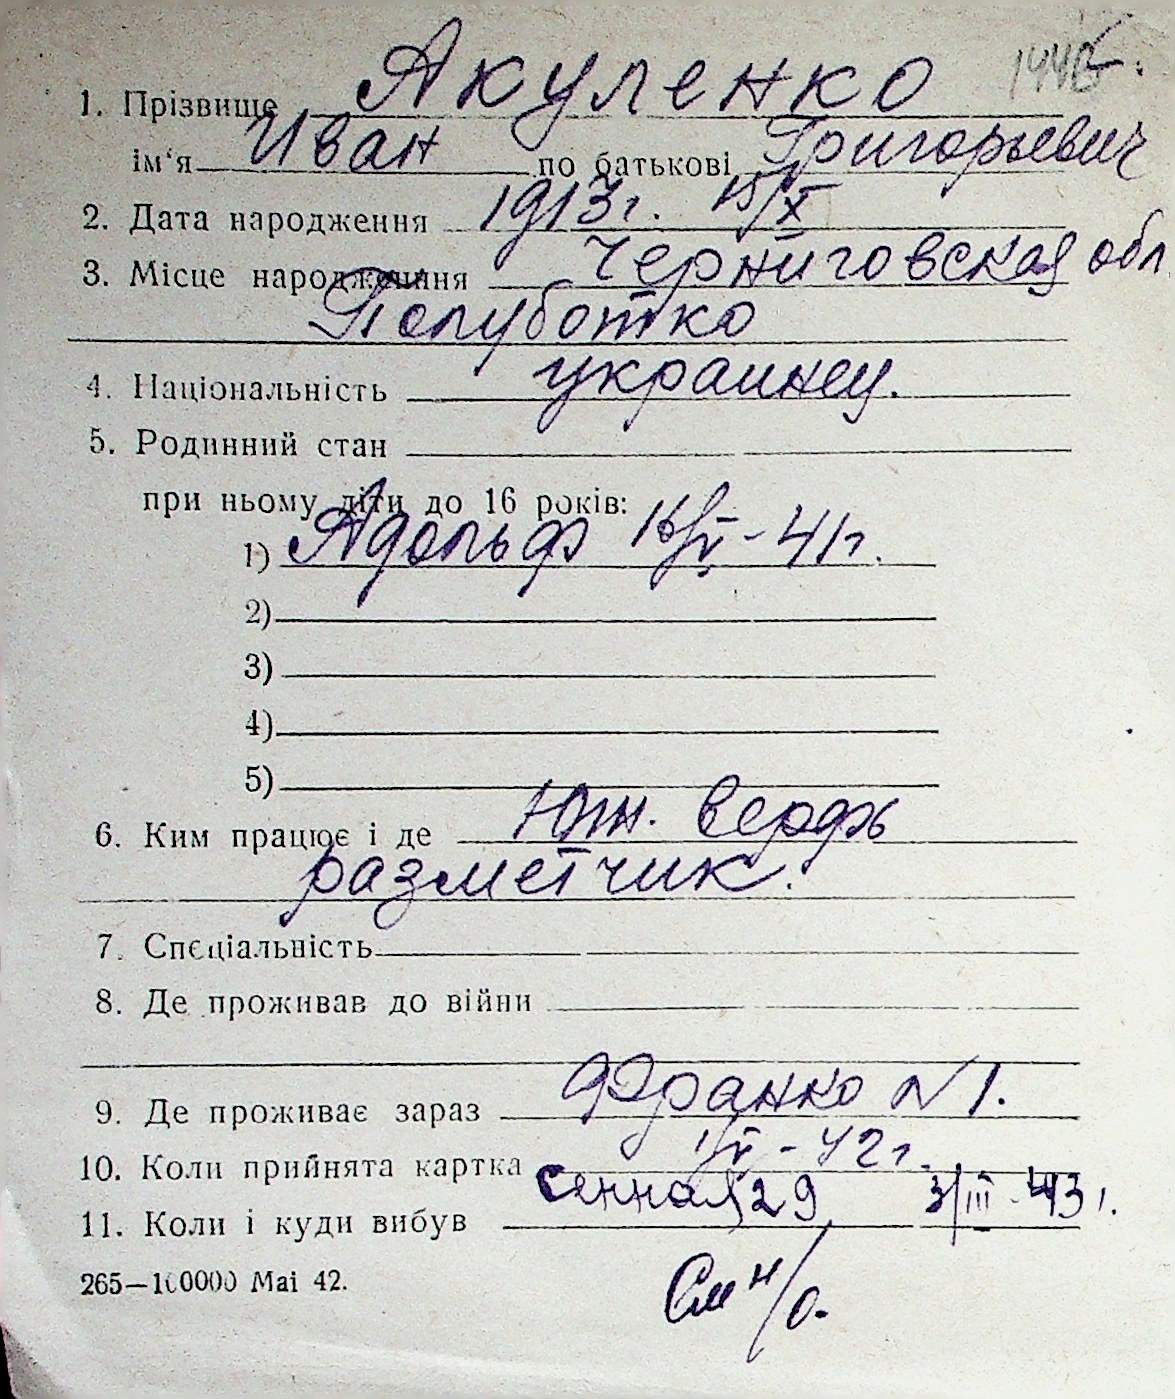 144
1. Прізвище Акуленко
ім'я Иван по батькові Григорьевич
2. Дата народження 1913 г. 15/X
3. Місце народження Черниговская обл
Полуботко
4. Національність украинец.
5. Родинний стан
при ньому діти до 16 років:
1) Адольф 16/V - 41 г.
2)
3)
4)
5)
6. Ким працює і де Юж. верфь
разметчик.
7. Спеціальність
8. Де проживав до війни
9. Де проживає зараз Франко N 1.
10. Коли прийнята картка 1/V - 42 г.
11. Коли і куди вибув Сенная 29 3/III - 43 г.
265—100000 Mai 42.
См н/о.